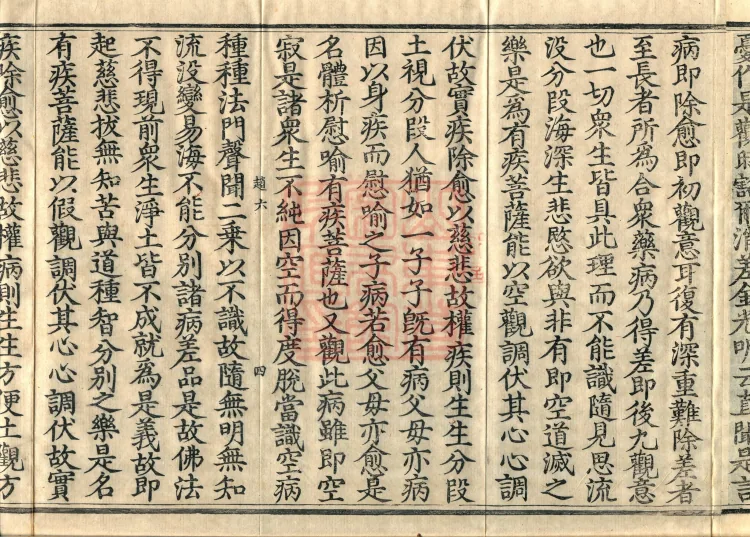 憂作是觀時諸病深差金光明云直聞是言
病即除愈即初觀意耳復有深重難除差者
至長者所為合眾藥病乃得差即後九觀意
也一切眾生皆具此理而不能識隨見思流
沒分段海深生悲愍欲與非有即空道滅之
樂是為有疾菩薩能以空觀調伏其心心調
伏故實疾除愈以慈悲故權疾則生生分段
土視分段人猶如一子子旣有病父母亦病
因以身疾而慰喻之子病若愈父母亦愈是
名體析慰喻有疾菩薩也又觀此病雖即空
寂是諸眾生不純因空而得度脫當識空病
趙六
四
種種法門聲聞二乗以不識故隨無明無知
流沒變易海不能分別諸病差品是故佛法
不得現前眾生淨土皆不成就為是義故即
起慈悲拔無知苦與道種智分別之樂是名
有疾菩薩能以假觀調伏其心心調伏故實
疾除愈以慈悲故權病則生生方便土觀方